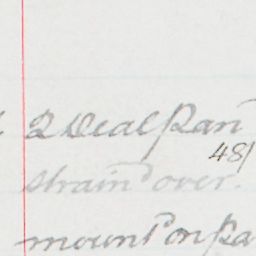 2 Deal Pan
481
strain'd over.
mount'd on pa